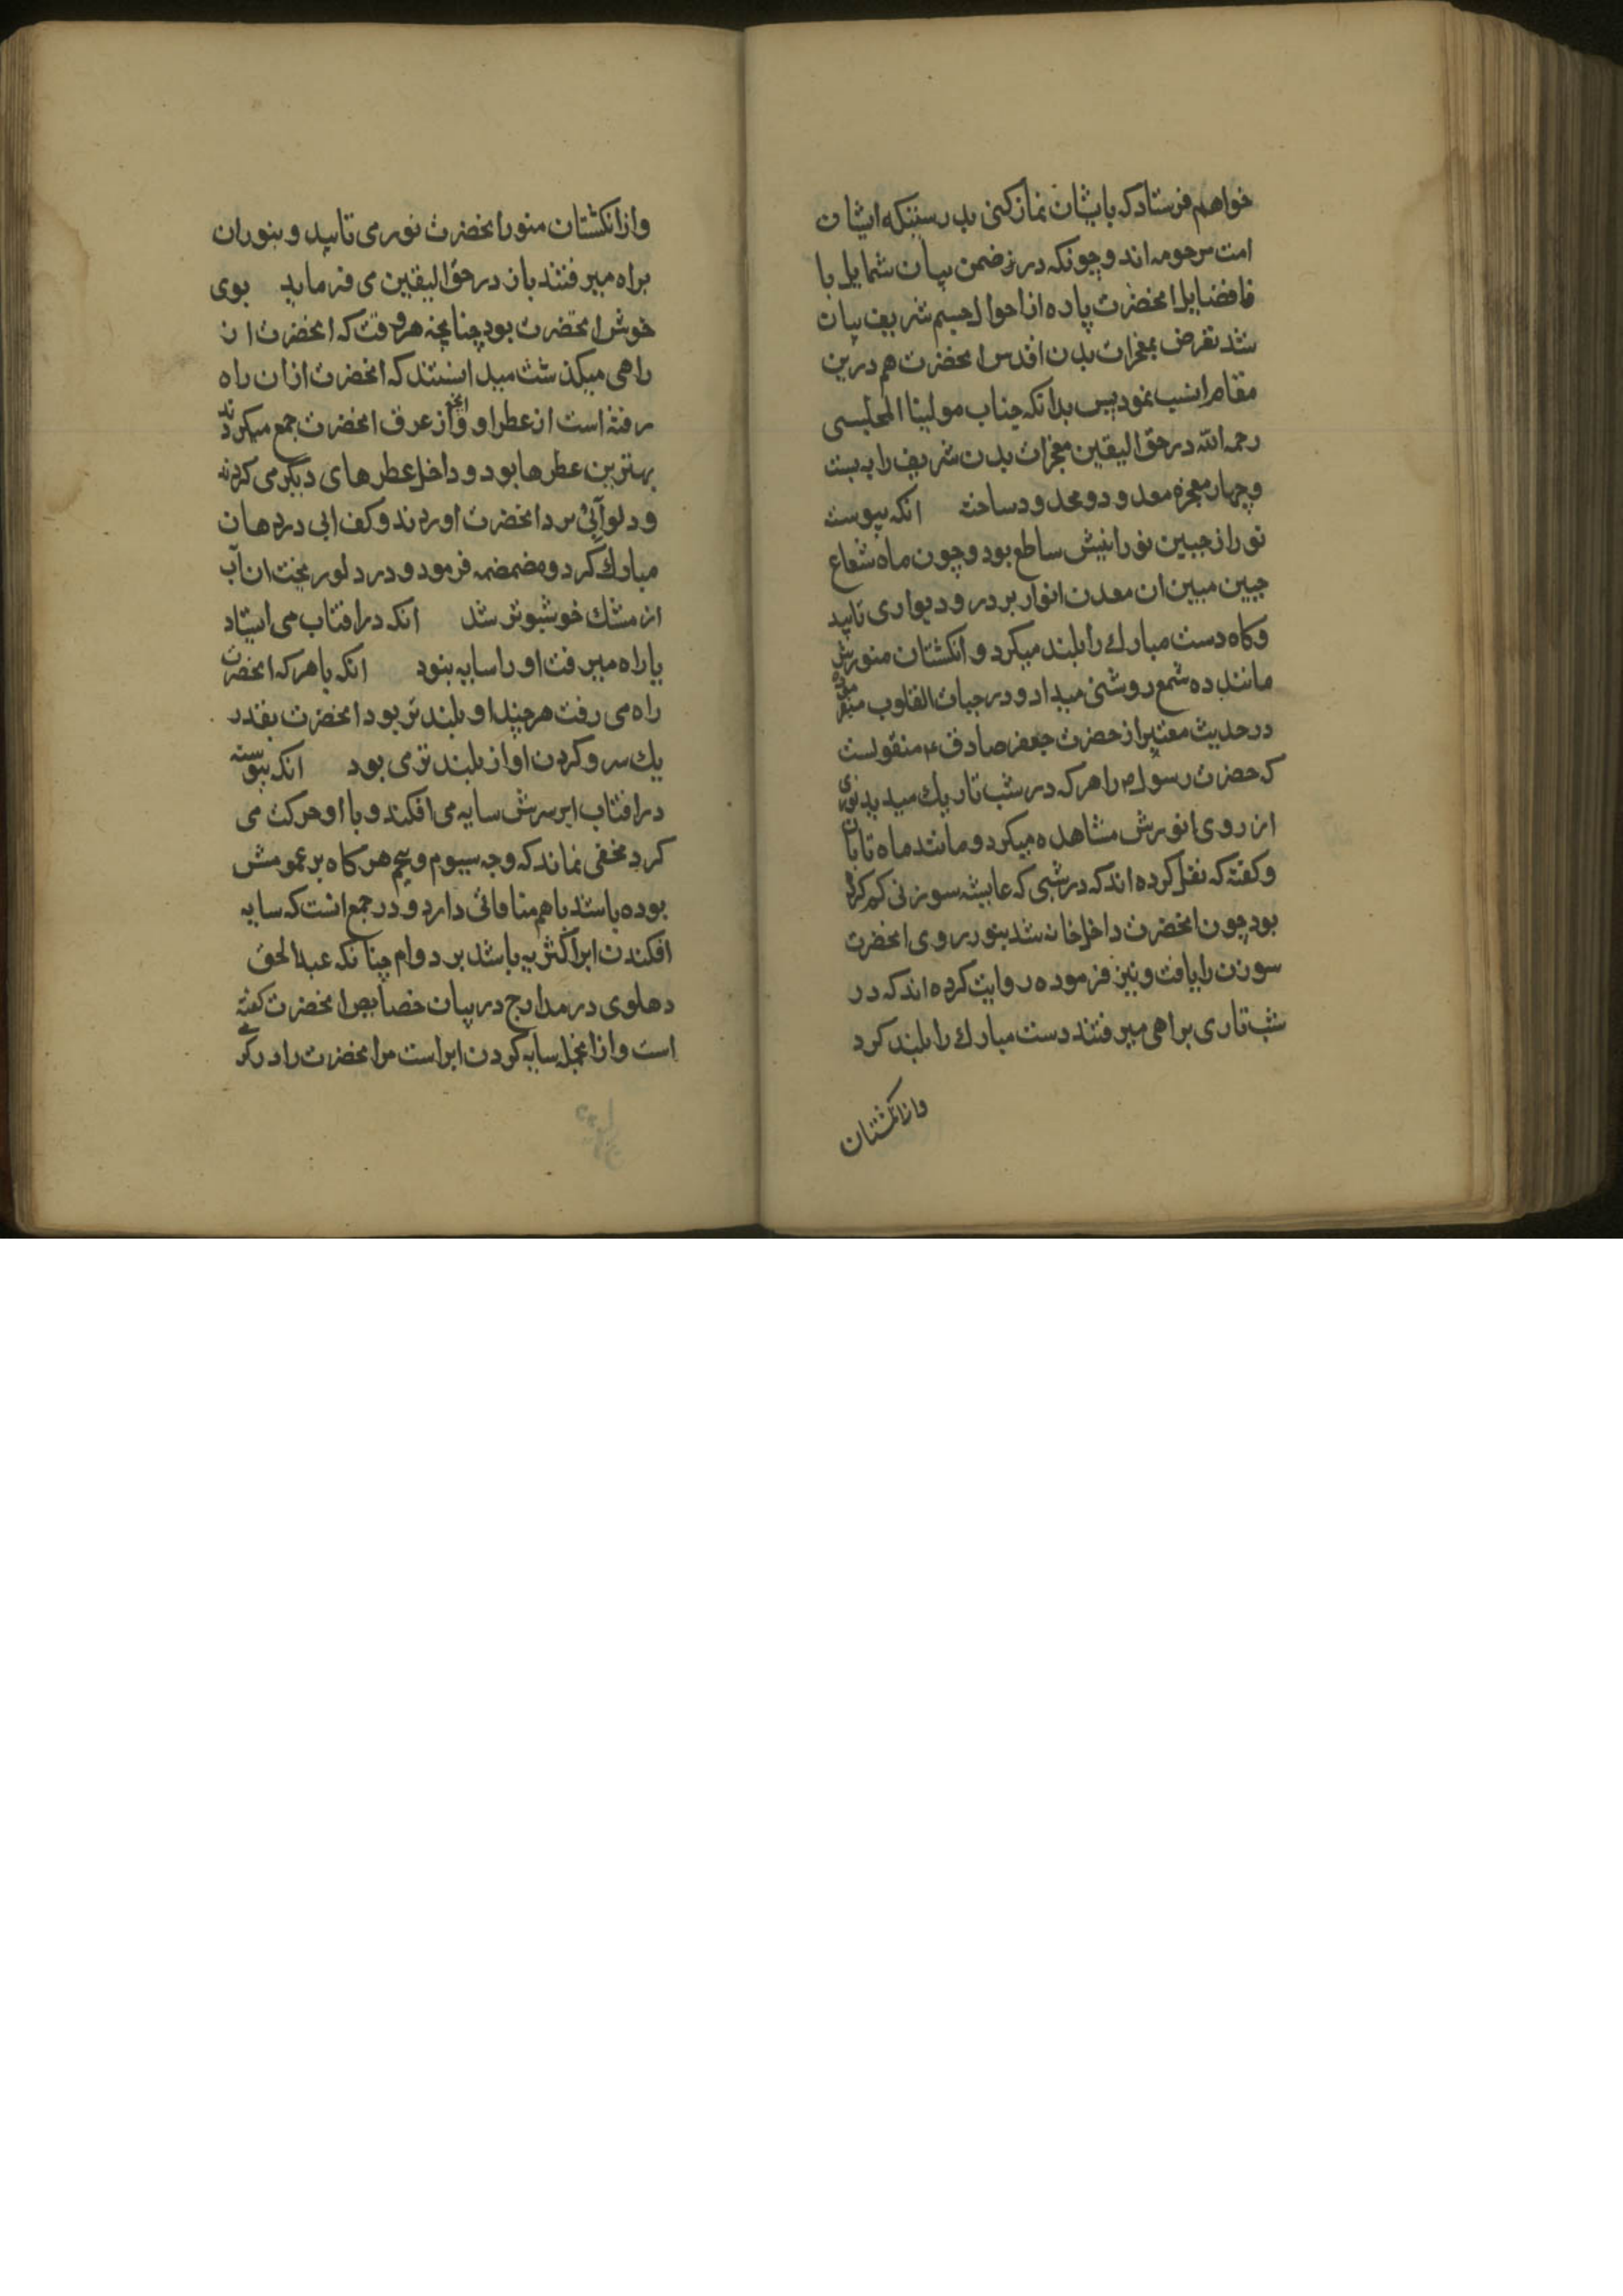 خواهم فرستاد که بایشان نماز کنی بدرستیکه ایشان
امت مرحومه اند و چونکه در ضمن بیان شمایل با
فضایل انحضرت پاره از احوال جسم شریف بیان
شد تعرض بمعجزات بدن اقدس انحضرت هم درین
مقام انسب نمود پس بدانکه جناب مولینا المجلسی
رحمه الله در حق الیقین معجزات بدن شریف را به بیست
و چهار معجزه معدود و محدود ساخته انکه پیوسته
نور از جبین نورانیش ساطع بود و چون ماه شعاع
جبین مبین ان معدن انوار بر در و دیوار می تابید
و کاه دست مبارک را بلند میکرد و انکشتان منورش
مانند ده شمع روشنی میداد و در حیات القلوب میفرموده
در حدیث معتبر از حضرت جعفر صادق ع منقولست
که حضرت رسول ص را هر که در شب تاریک میدید نوری
از روی انورش مشاهده میکرد و مانند ماه تابان
و کفته که نقل کرده اند که در شبی که عایشه سوزنی کم کرده
بود چون انحضرت داخل خانه شد بنور روی انحضرت
سوزن را یافت و نیز فرموده روایت کرده اند که در
شب تاری براهی میرفتند دست مبارک را بلند کرد
وازانکشتان
و از انکشتان منور انحضرت نور می تابید و بنور ان
براه میرفتند باز در حق الیقین می فرماید بوی
خوش انحضرت بود چنانچه هر وقت که انحضرت از
راهی میکذشت میدانستند که انحضرت ازان راه
رفته است از عطر او و از عرق انحضرت جمع میکردند
بهترین عطرها بود و داخل عطرهای دیکر می کردند
و دلو آبی نزد انحضرت اوردند و کف ابی در دهان
مبارک کرد و مضمضه فرمود و در دلو ریخت ان آب
از مشک خوشبوتر شد انکه در افتاب می ایستاد
یا راه میرفت او را سایه نبود انکه با هر که انحضرت
راه می رفت هر چند او بلندتر بود انحضرت بقدر
یک سر و کردن او از بلندتر می بود انکه پیوسته
در افتاب ابر بر سرش سایه می افکند و با او حرکت می
کرد مخفی نماند که وجه سیوم و پنجم هر کاه بر عمومش
بوده باشد با هم منافاتی دارد و در جمع انست که سایه
افکندن ابر اکثریه باشد بر دوام چنانکه عبدالحق
دهلوی در مدارج در بیان خصایص انحضرت کفته
است و از انجمله سایه کردن ابر است مر انحضرت را در